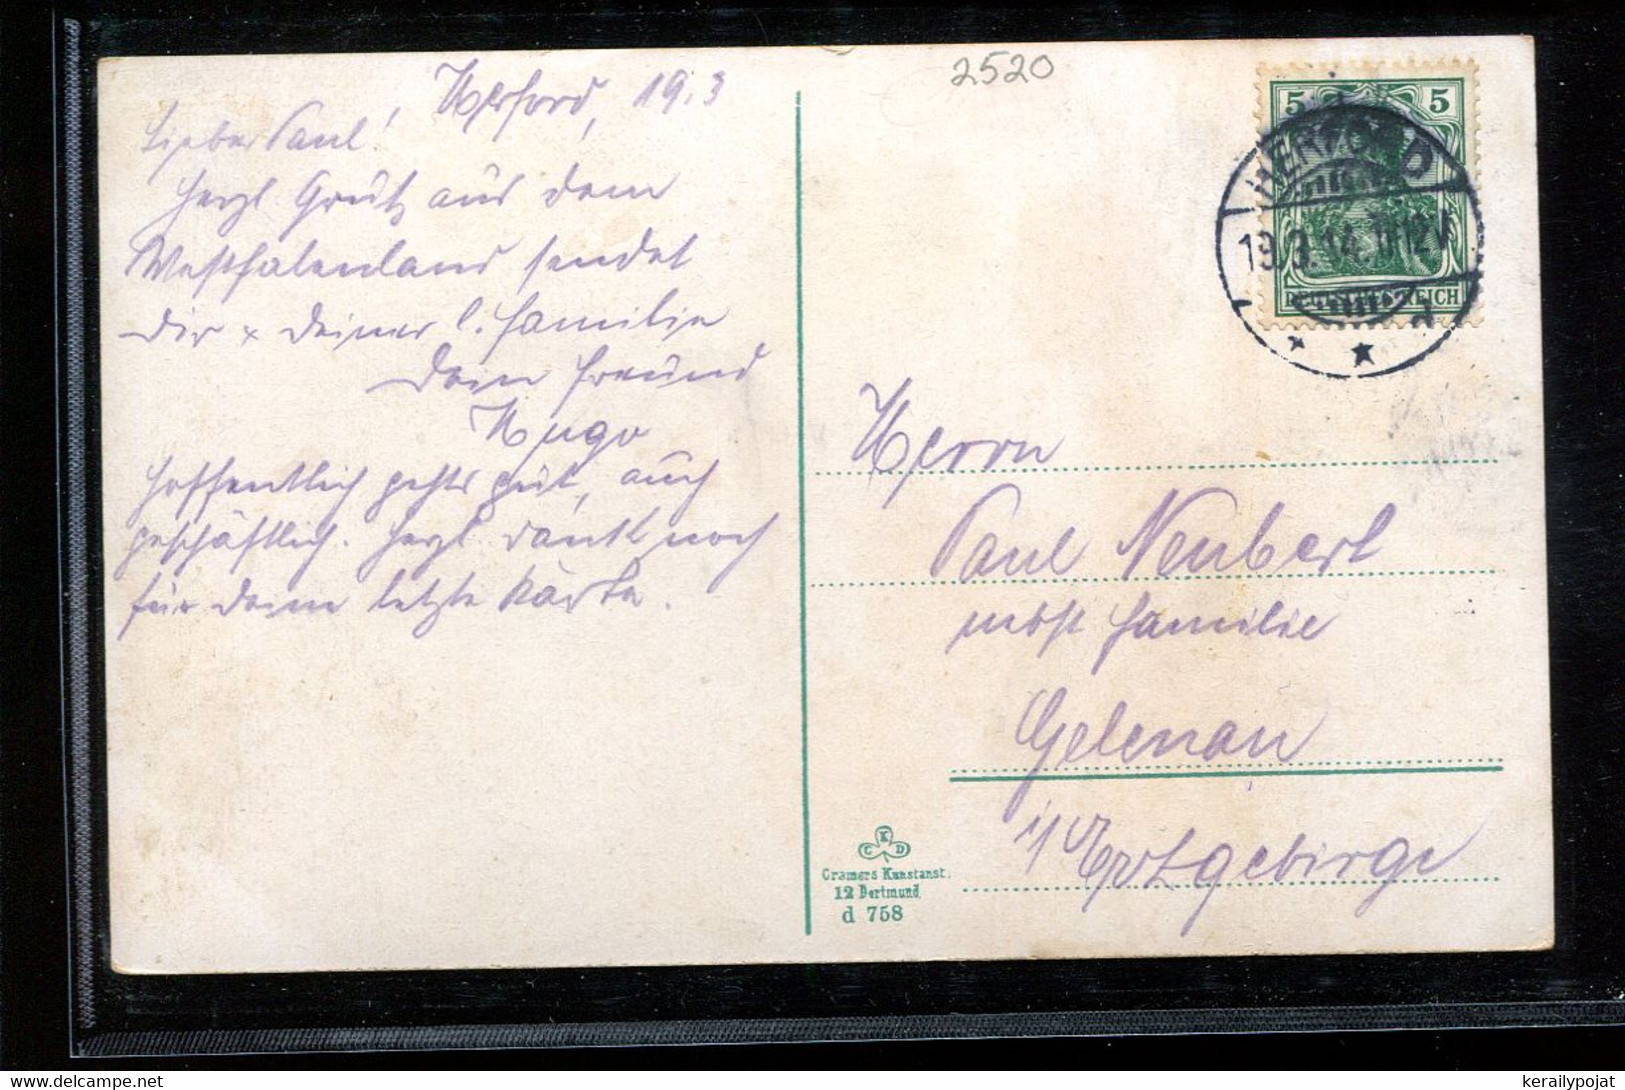 2520
Herford, 19.3
Lieber Paul!
Herzl Gruß aus dem
Westfalenland sendet
Dir + Deiner l. Familie
Dein Freund
Hugo
Hoffentlich gehts gut, auch
geschäftlich. Herzl Dank noch
für Deine letzte Karte.
5 5
HERFORD
19.3.14. 11-12V
DEUTSCHES REICH
d
Herrn
Paul Neubert
nebst Familie
Gelenau
i/ Erzgebirge
K
C D
Cramers Kunstanst.
12 Dortmund
d 758
kerailypojat
www.delcampe.net